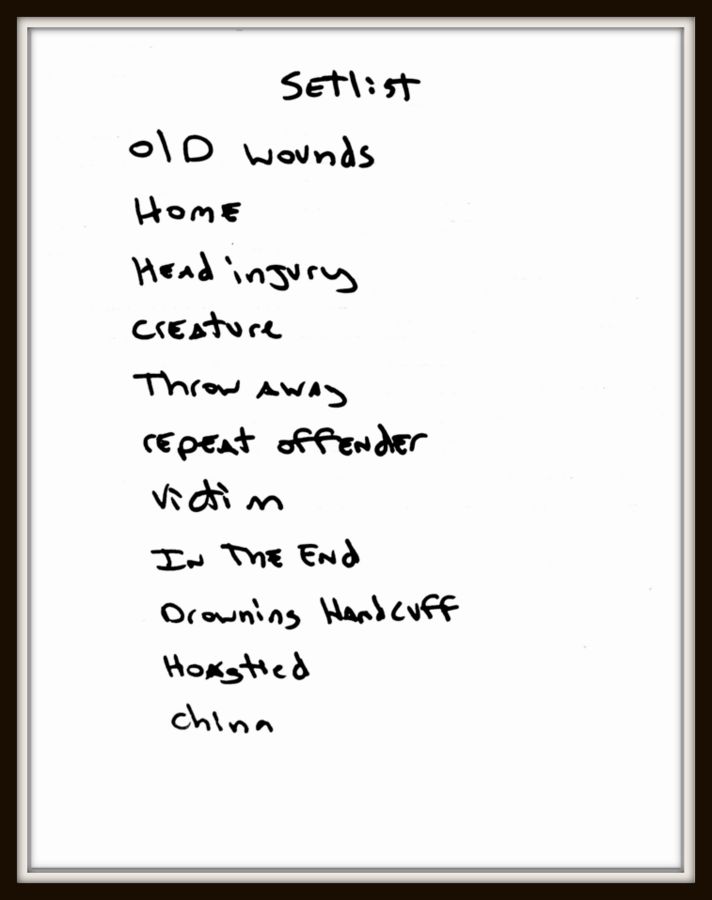 Setlist
Old Wounds
Home
Head injury
Creature
Throw away
repeat offender
Victim
In The End
Drowning Handcuff
Hogstied
China